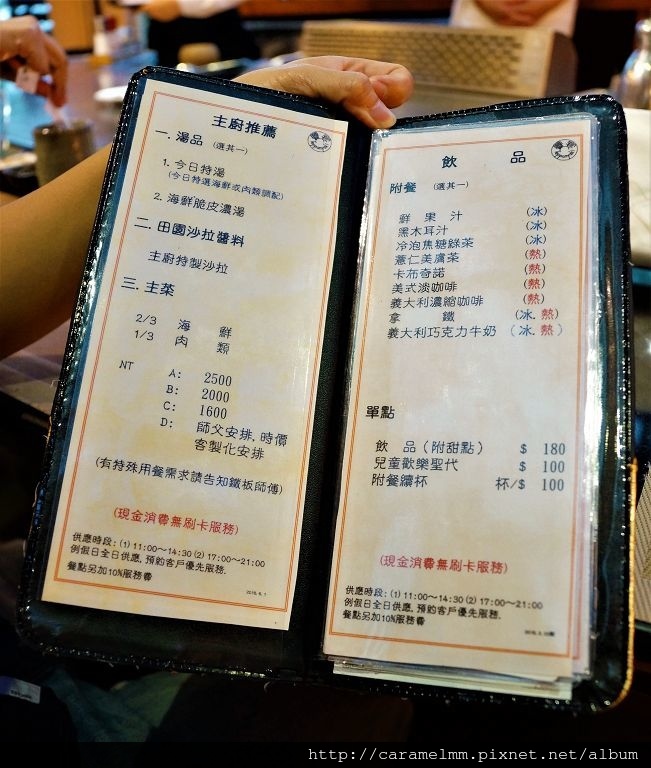 主廚推薦
一. 湯品 (選其一)
1. 今日特湯
(今日特選海鮮或肉類調配)
2. 海鮮脆皮濃湯
二. 田園沙拉醬料
主廚特製沙拉
三. 主菜
2/3 海 鮮
1/3 肉 類
NT A: 2500
B: 2000
C: 1600
D: 師父安排, 時價
客製化安排
(有特殊用餐需求請告知鐵板師傅)
(現金消費無刷卡服務)
供應時段: (1) 11:00～14:30 (2) 17:00～21:00
例假日全日供應, 預約客戶優先服務.
餐點另加10%服務費
飲 品
附餐 (選其一)
鮮 果 汁 (冰)
黑木耳汁 (冰)
冷泡焦糖錸茶 (冰)
薏仁美膚茶 (熱)
卡布奇諾 (熱)
美式淡咖啡 (熱)
義大利濃縮咖啡 (熱)
拿 鐵 (冰. 熱)
義大利巧克力牛奶 (冰. 熱)
單點
飲 品 (附甜點) $ 180
兒童歡樂聖代 $ 100
附餐續杯 杯/$ 100
(現金消費無刷卡服務)
供應時段: (1) 11:00～14:30 (2) 17:00～21:00
例假日全日供應, 預約客戶優先服務.
餐點另加10%服務費
http://caramelmm.pixnet.net/album